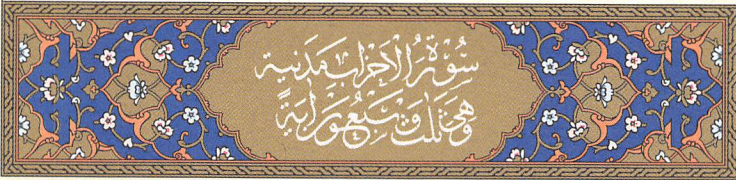 سُورَةُ الْأَحْزَابِ مَدَنِيَّة
وَهِيَ ثَلَثٌ وَسَبْعُونَ آيَةً